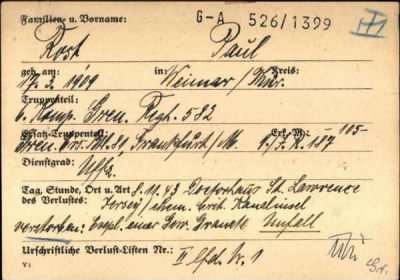 Familien- u. Vorname: G-A 526/1399
Rost Paul
geb. am: in: Kreis:
17. 3. 1909 Weimar / Thür.
Truppenteil:
6. Komp. Gren. Regt. 582
Ersatz-Truppenteil: Erk.-M.: 105-
Gren. Ers. Btl. 81 Frankfurt/M.
Dienstgrad:
Uffz.
Tag, Stunde, Ort u. Art 8. 11. 43 Doctorhaus St. Lawrence
des Verlustes: Jersey/ehem. brit. Kanalinsel
verstorben: Expl. einer Gew. Granate Unfall
Urschriftliche Verlust-Listen Nr.: II lfd. Nr. 1
V1